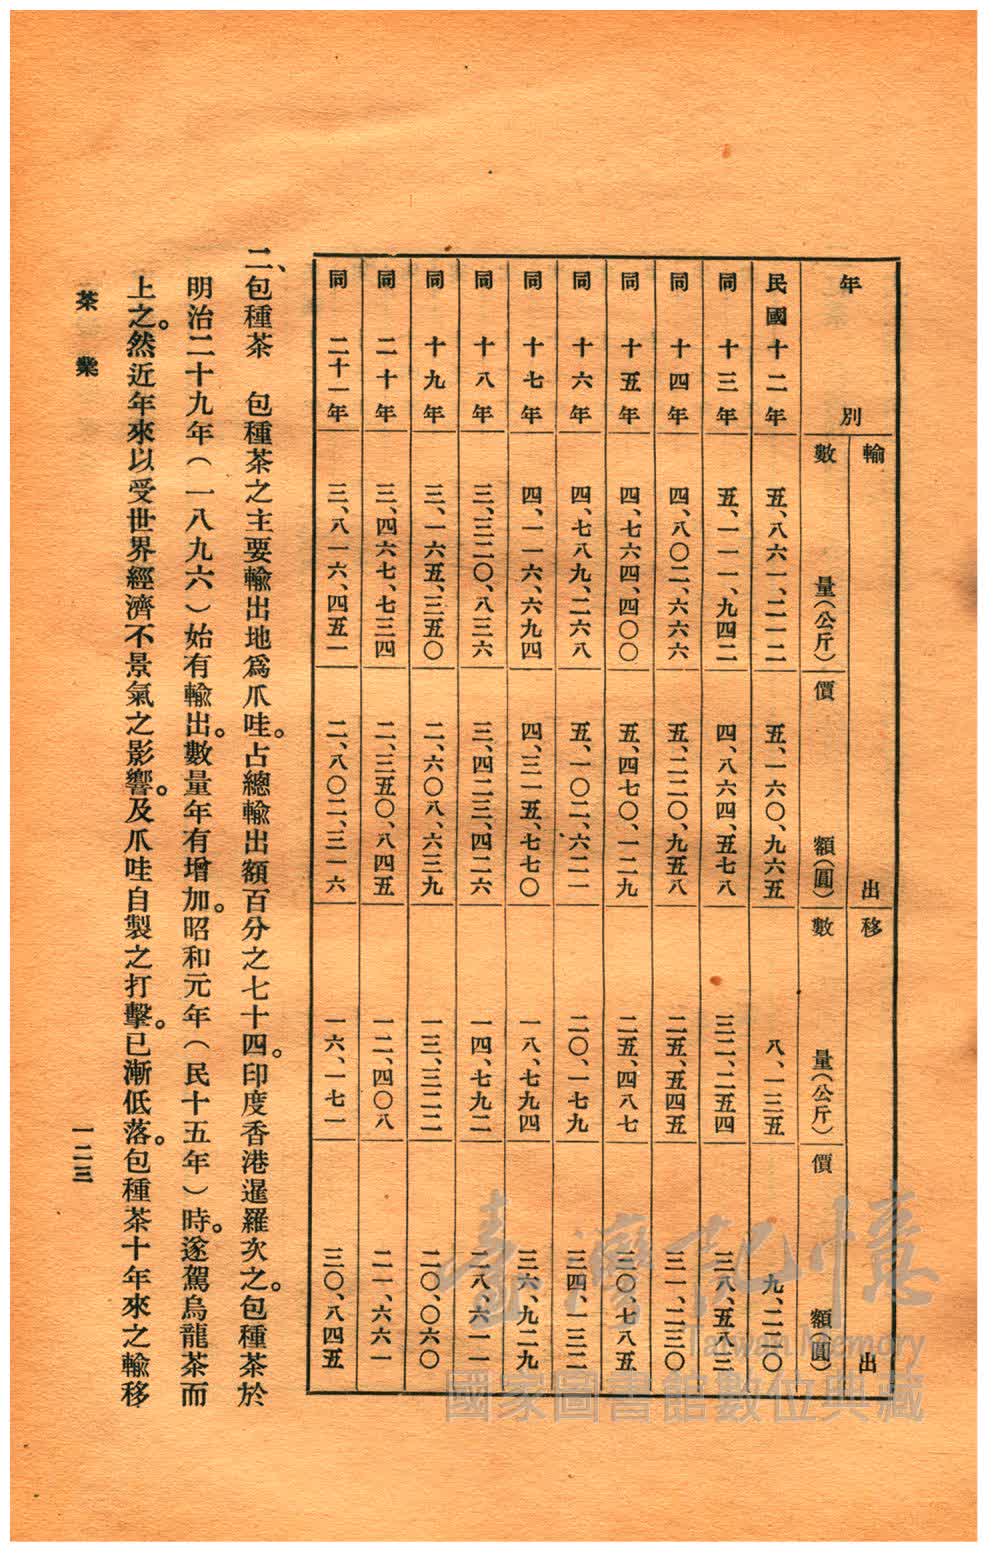 年別
輸出
數量（公斤）
價額（圓）
移出
數量（公斤）
價額（圓）
民國十二年 五、八六一、二一二 五、一六〇、九六五 八、一三五 九、二二〇
同十三年 五、一一一、九四二 四、八六四、五七八 三二、二五四 三八、五八三
同十四年 四、八〇二、六六六 五、二二〇、九五八 二五、五四五 三一、二三〇
同十五年 四、七六四、四〇〇 五、四七〇、一二九 二五、四八七 三〇、七八五
同十六年 四、七八九、二六八 五、一〇二、六二一 二〇、一七九 三四、一三二
同十七年 四、一一六、六九四 四、三一五、七七〇 一八、七九四 三六、九二九
同十八年 三、三二〇、八三六 三、四二三、四二六 一四、七九二 二八、六一一
同十九年 三、一六五、三五〇 二、六〇八、六三九 一三、三二二 二〇、〇六〇
同二十年 三、四六七、七三四 二、三五〇、八四五 一二、四〇八 二一、六六一
同二十一年 三、八一六、四五一 二、八〇二、三一六 一六、一七一 三〇、八四五
二、包種茶　包種茶之主要輸出地爲爪哇。占總輸出額百分之七十四。印度香港暹羅次之。包種茶於
明治二十九年（一八九六）始有輸出。數量年有增加。昭和元年（民十五年）時。遂駕烏龍茶而
上之。然近年來以受世界經濟不景氣之影響。及爪哇自製之打擊。已漸低落。包種茶十年來之輸移
茶業
一二三
臺灣記憶
Taiwan Memory
國家圖書館數位典藏